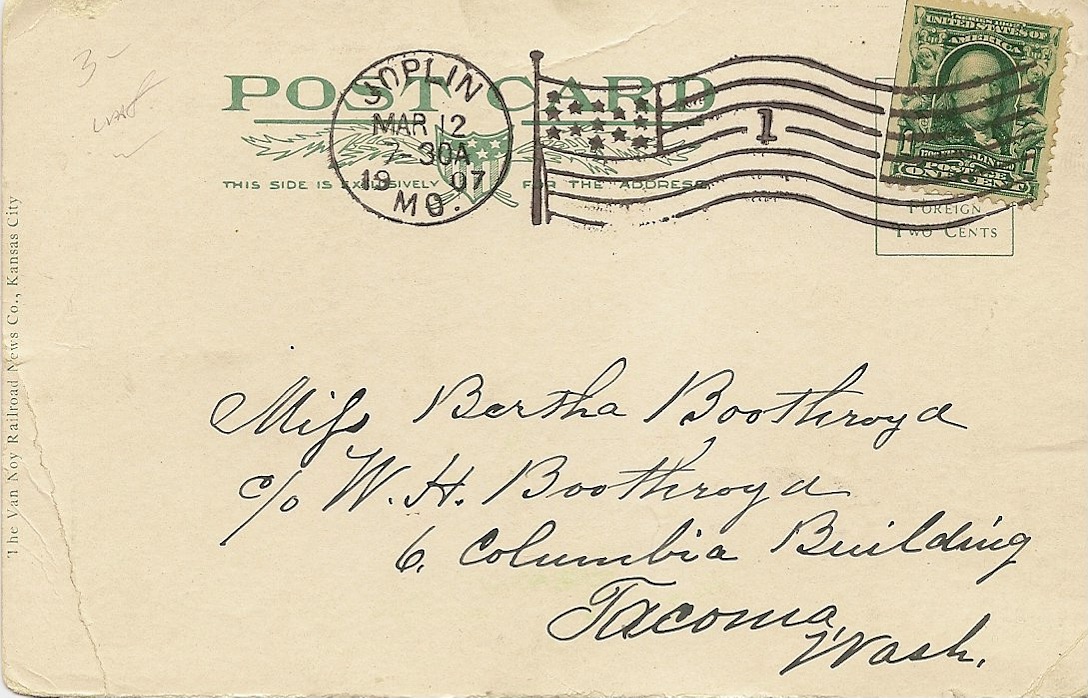 3-
POST CARD
JOPLIN
MAR 12
7-30A
1907
MO.
1
SERIES 1902
UNITED STATES OF
AMERICA
POSTAGE
ONE CENT
1 1
THIS SIDE IS EXCLUSIVELY FOR THE ADDRESS.
FOREIGN
TWO CENTS
The Van Noy Railroad News Co., Kansas City
Miss Bertha Boothroyd
c/o W. H. Boothroyd
6, Columbia Building
Tacoma,
Wash.